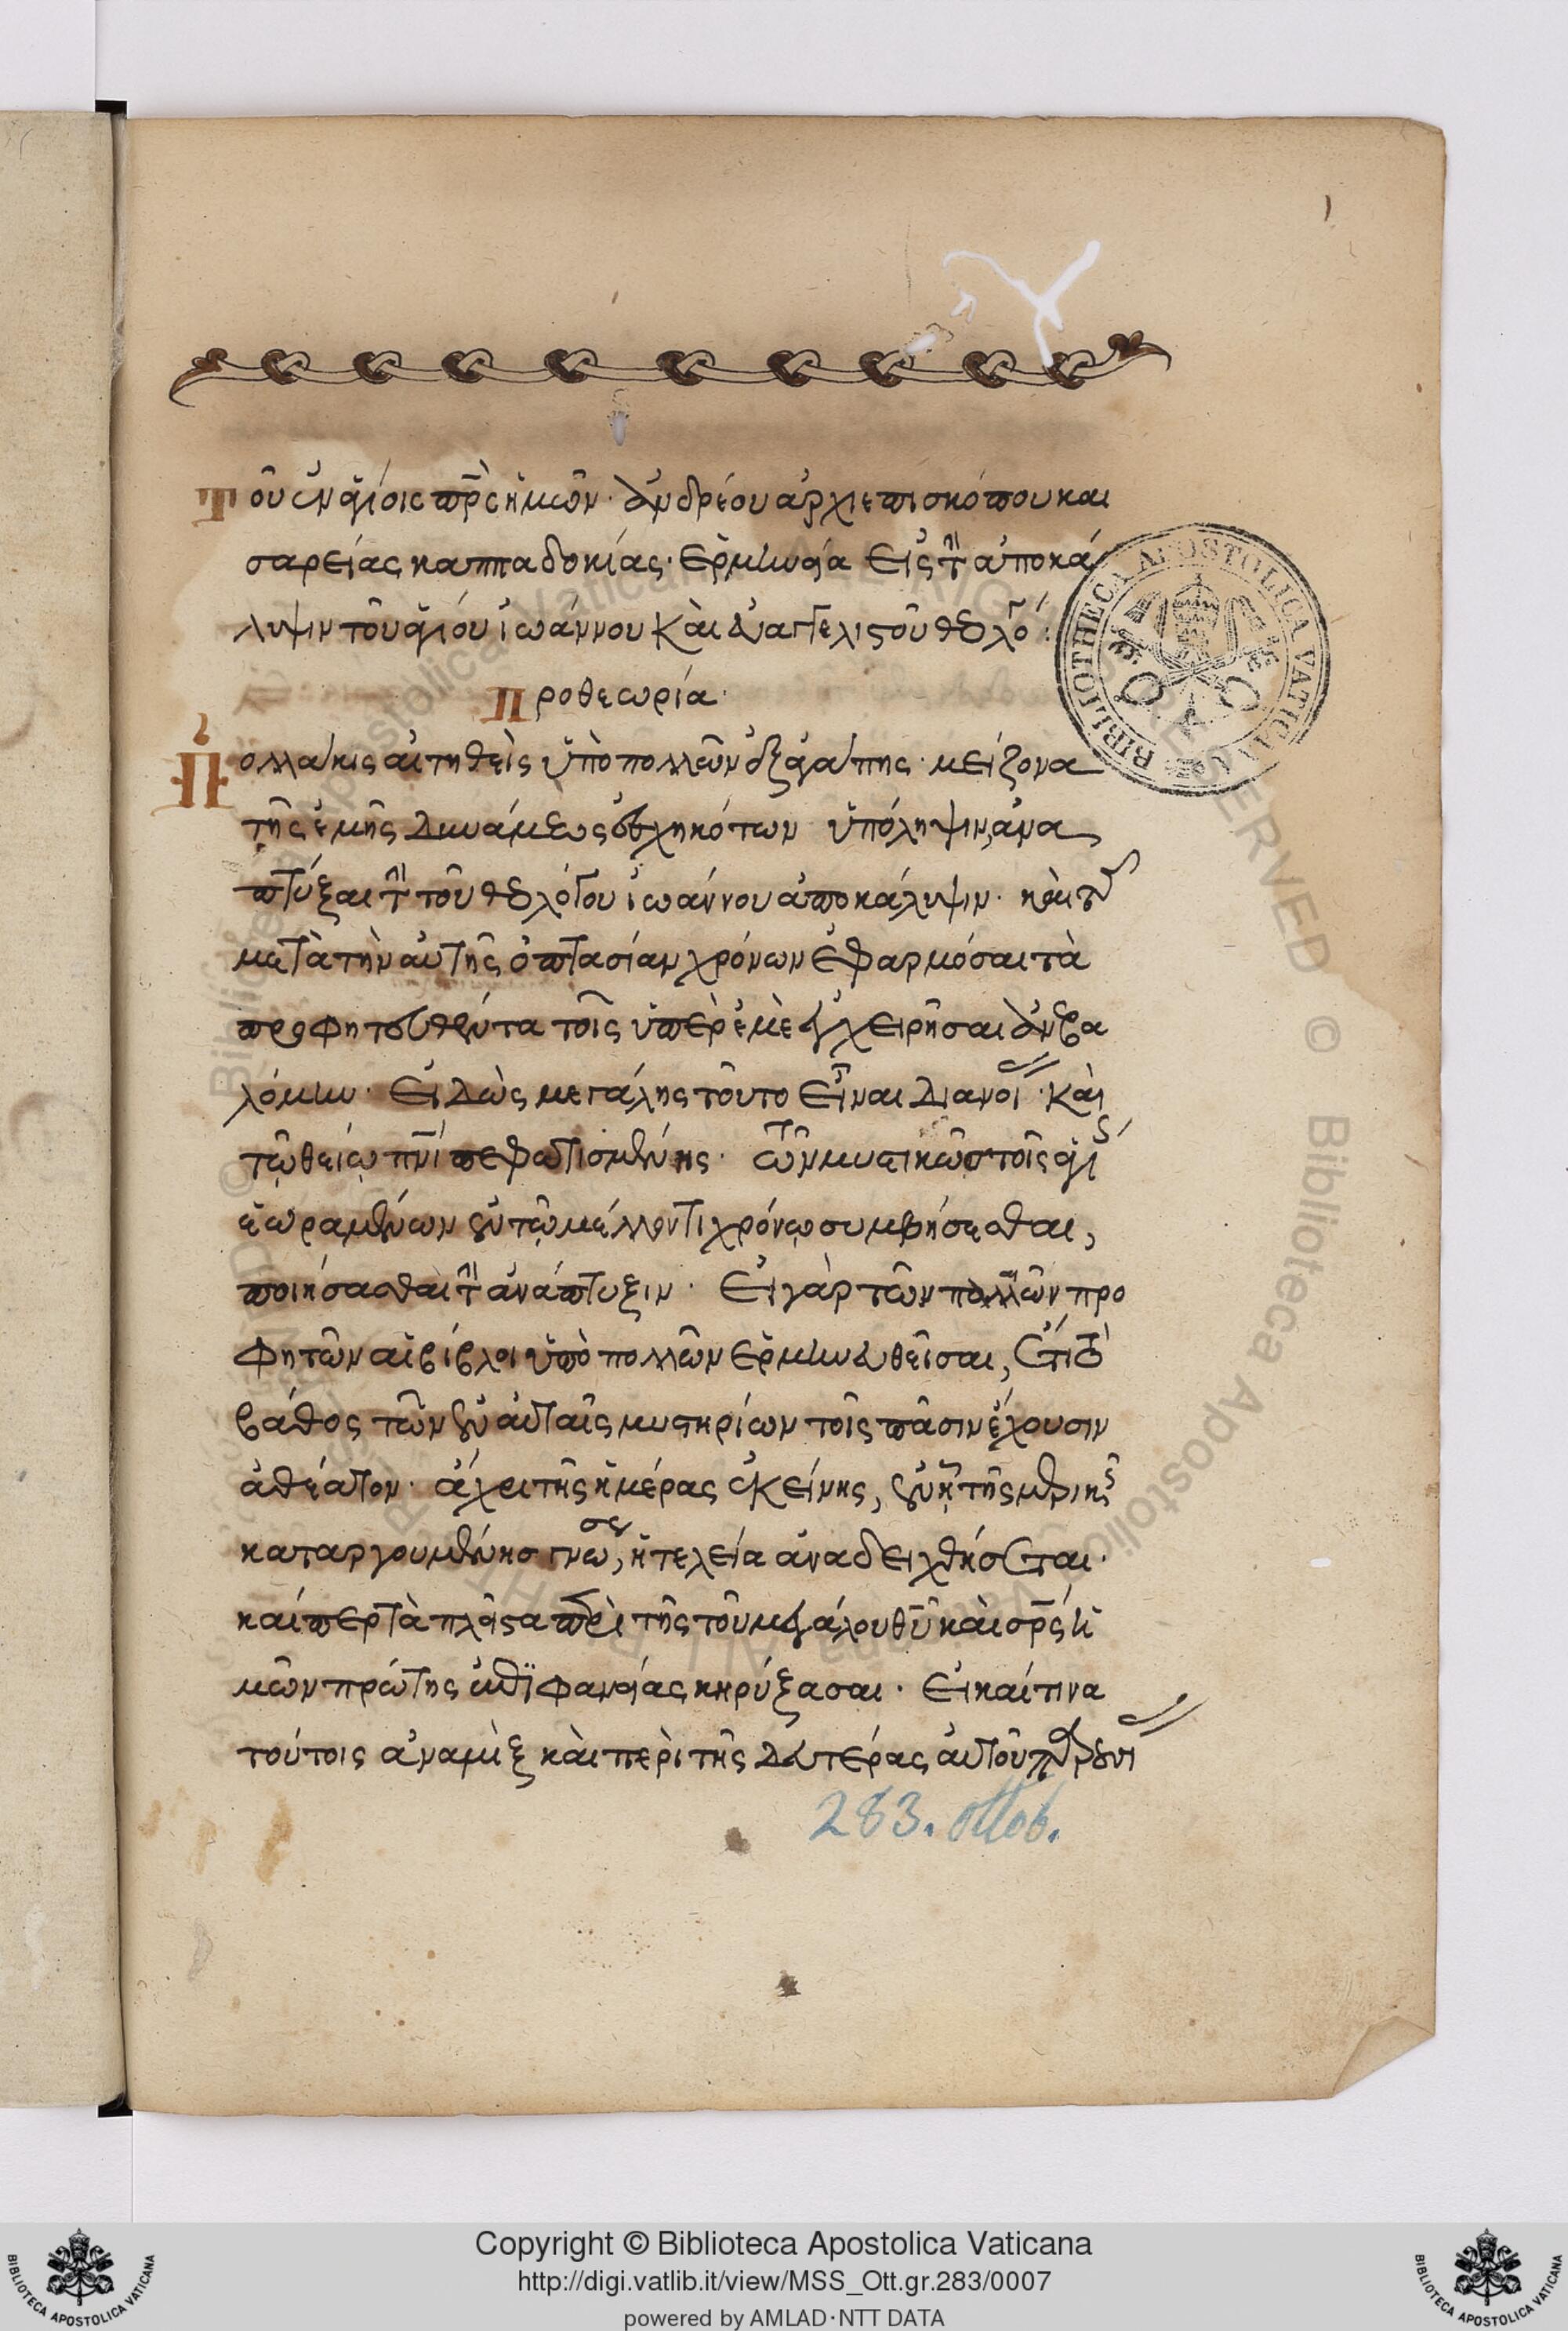 Τοῦ ἐν ἁγίοις πρς ἡμῶν· ἀνδρέου ἀρχιεπισκόπου και
σαρείας καππαδοκίας· ἑρμηνεία εἰς τὴν ἀποκά
λυψιν τοῦ ἁγίου ἰωάννου καὶ εὐαγγελιστοῦ θεολό:
Προθεωρία·
Πολλάκις αἰτηθεὶς ὑπὸ πολλῶν ἐξ ἀγάπης· μείζονα
τῆς ἐμῆς δυνάμεως ἐσχηκότων ὑπόληψιν, ἀνα
πτύξαι τὴν τοῦ θεολόγου ἰωάννου ἀποκάλυψιν· καὶ τοῖς
μετὰ τὴν αὐτῆς ὀπτασίαν χρόνων ἐφαρμόσαι τὰ
προφητευθέντα τοῖς ὑπὲρ ἐμὲ ἐγχειρῆσαι ἀνεβα
λόμην· εἰδὼς μεγάλης τοῦτο εἶναι διανοί· καὶ
τῷ θείῳ πνι πεφωτισμένης· τῶν μυστικῶς τοῖς ἁγί
ἑωραμένων ἐν τῷ μέλλοντι χρόνῳ συμβήσεσθαι,
ποιήσασθαι τὴν ἀνάπτυξιν· εἰ γὰρ τῶν πολλῶν προ
φητῶν αἱ βίβλοι ὑπὸ πολλῶν ἑρμηνευθεῖσαι, ἔτι τὸ
βάθος τῶν ἐν αὐταῖς μυστηρίων τοῖς πᾶσιν ἔχουσιν
ἀθέατον· ἄχρι τῆς ἡμέρας ἐκείνης, ἐν ᾗ τῆς μερικῆς
καταργουμένης γνώσε, ἡ τελεία ἀναδειχθήσεται·
καίπερ τὰ πλεῖστα περὶ τῆς τοῦ μεγάλου θυ καὶ σρς ἡ
μῶν πρώτης ἐπιφανείας κηρύξασαι· εἰ καί τινα
τούτοις ἀναμὶξ καὶ περὶ τῆς δευτέρας αὐτοῦ παρουσί
283. Ottob.
BIBLIOTHECA APOSTOLICA VATICANA
Copyright © Biblioteca Apostolica Vaticana
http://digi.vatlib.it/view/MSS_Ott.gr.283/0007
powered by AMLAD·NTT DATA
BIBLIOTECA APOSTOLICA VATICANA
BIBLIOTECA APOSTOLICA VATICANA